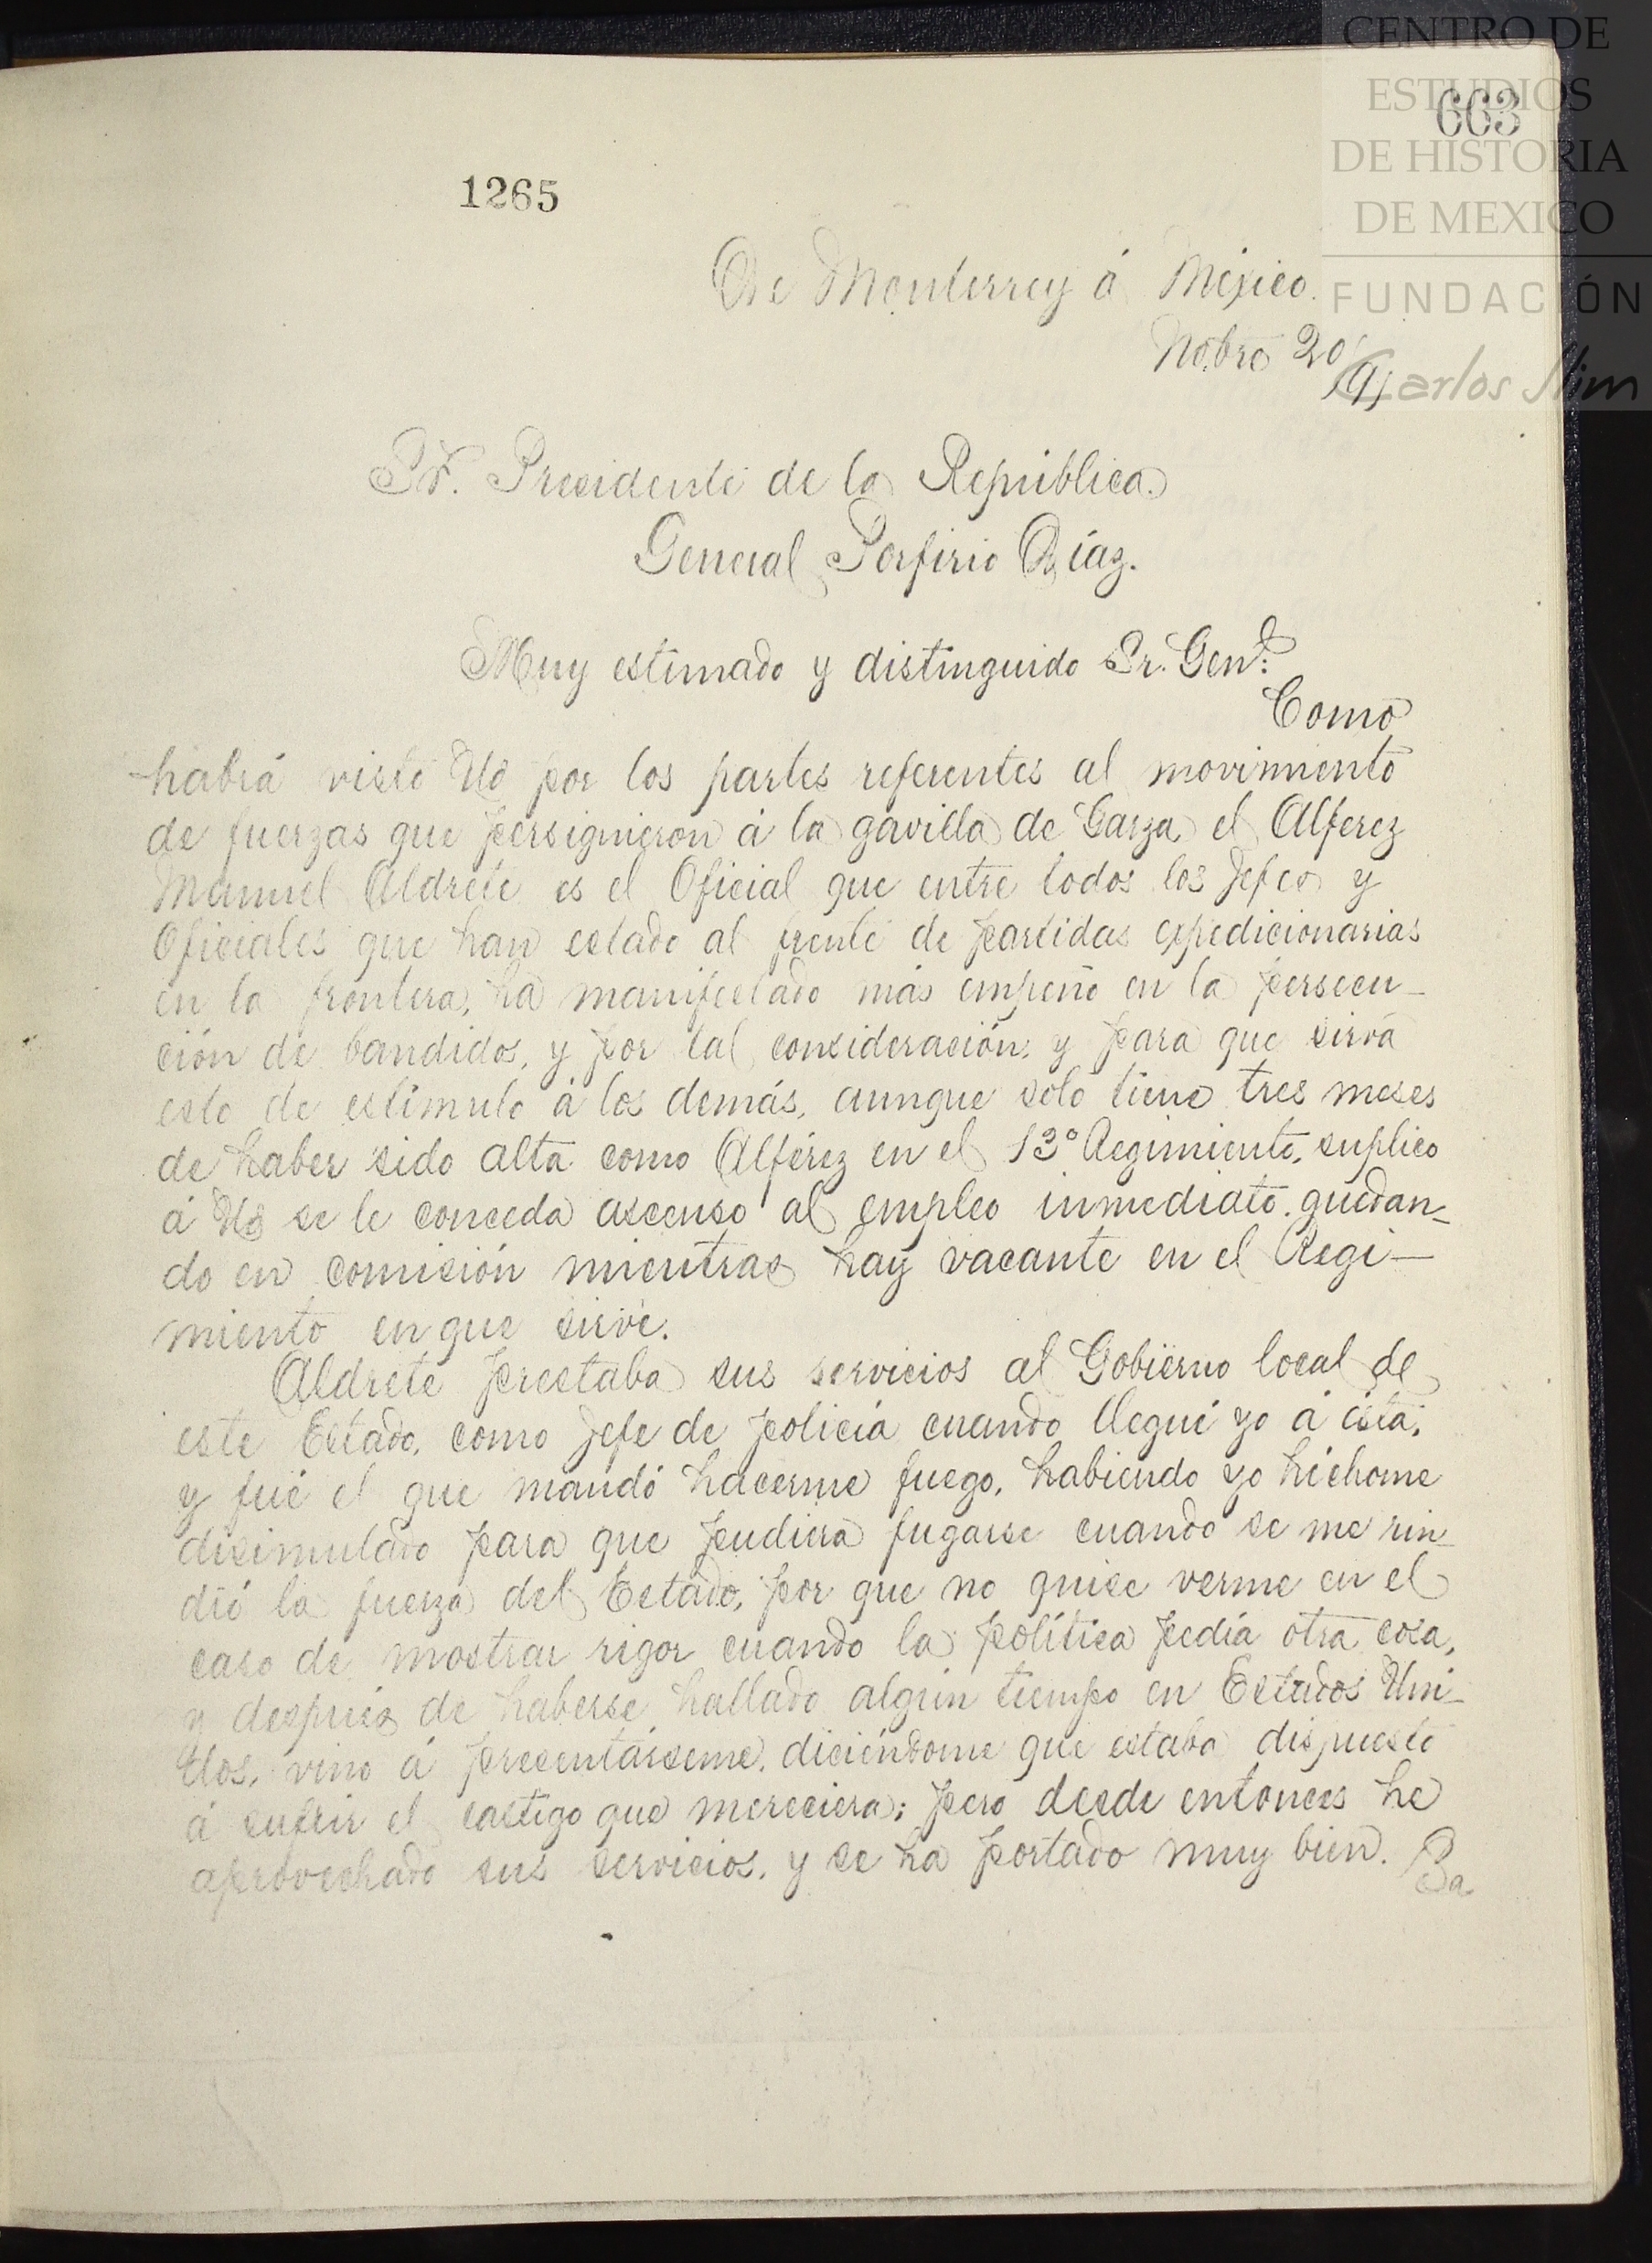 CENTRO DE
ESTUDIOS
663
DE HISTORIA
DE MEXICO
FUNDACIÓN
Carlos Slim
1265
De Monterrey á México.
Nobre 20/91
Sr. Presidente de la República.
General Porfirio Díaz.
Muy estimado y distinguido Sr. Genl:
Como
habrá visto Ud por los partes referentes al movimiento
de fuerzas que persiguieron á la gavilla de Garza, el Alferez
Manuel Aldrete es el Oficial que entre todos los Jefes y
Oficiales que han estado al frente de partidas expedicionarias
en la frontera, ha manifestado más empeño en la persecu-
ción de bandidos, y por tal consideración, y para que sirva
esto de estímulo á los demás, aunque sólo tiene tres meses
de haber sido alta como Alférez en el 13º Regimiento, suplico
á Ud se le conceda ascenso al empleo inmediato, quedan-
do en comisión mientras hay vacante en el Regi-
miento en que sirve.
Aldrete prestaba sus servicios al Gobierno local de
este Estado, como Jefe de policía cuando llegué yo á ésta,
y fué el que mandó hacerme fuego, habiendo yo héchome
disimulado para que pudiera fugarse cuando se me rin-
dió la fuerza del Estado, por que no quise verme en el
caso de mostrar rigor cuando la política pedía otra cosa,
y después de haberse hallado algún tiempo en Estados Uni-
dos, vino á presentárseme, diciéndome que estaba dispuesto
á sufrir el castigo que mereciera; pero desde entonces he
aprovechado sus servicios, y se ha portado muy bien. Ba